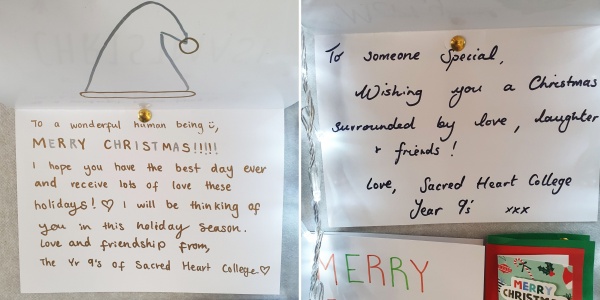 To a wonderful human being ü,
MERRY CHRISTMAS!!!!!
I hope you have the best day ever
and receive lots of love these
holidays! ♡ I will be thinking of
you in this holiday season.
Love and friendship from,
The Yr 9's of Sacred Heart College ♡
To someone Special,
Wishing you a Christmas
surrounded by love, laughter
+ friends!
Love, Sacred Heart College
Year 9's xxx
MERRY
MERRY
CHRISTMAS